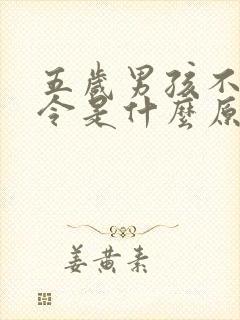 五歲男孩不
令是什麼原
姜黄素